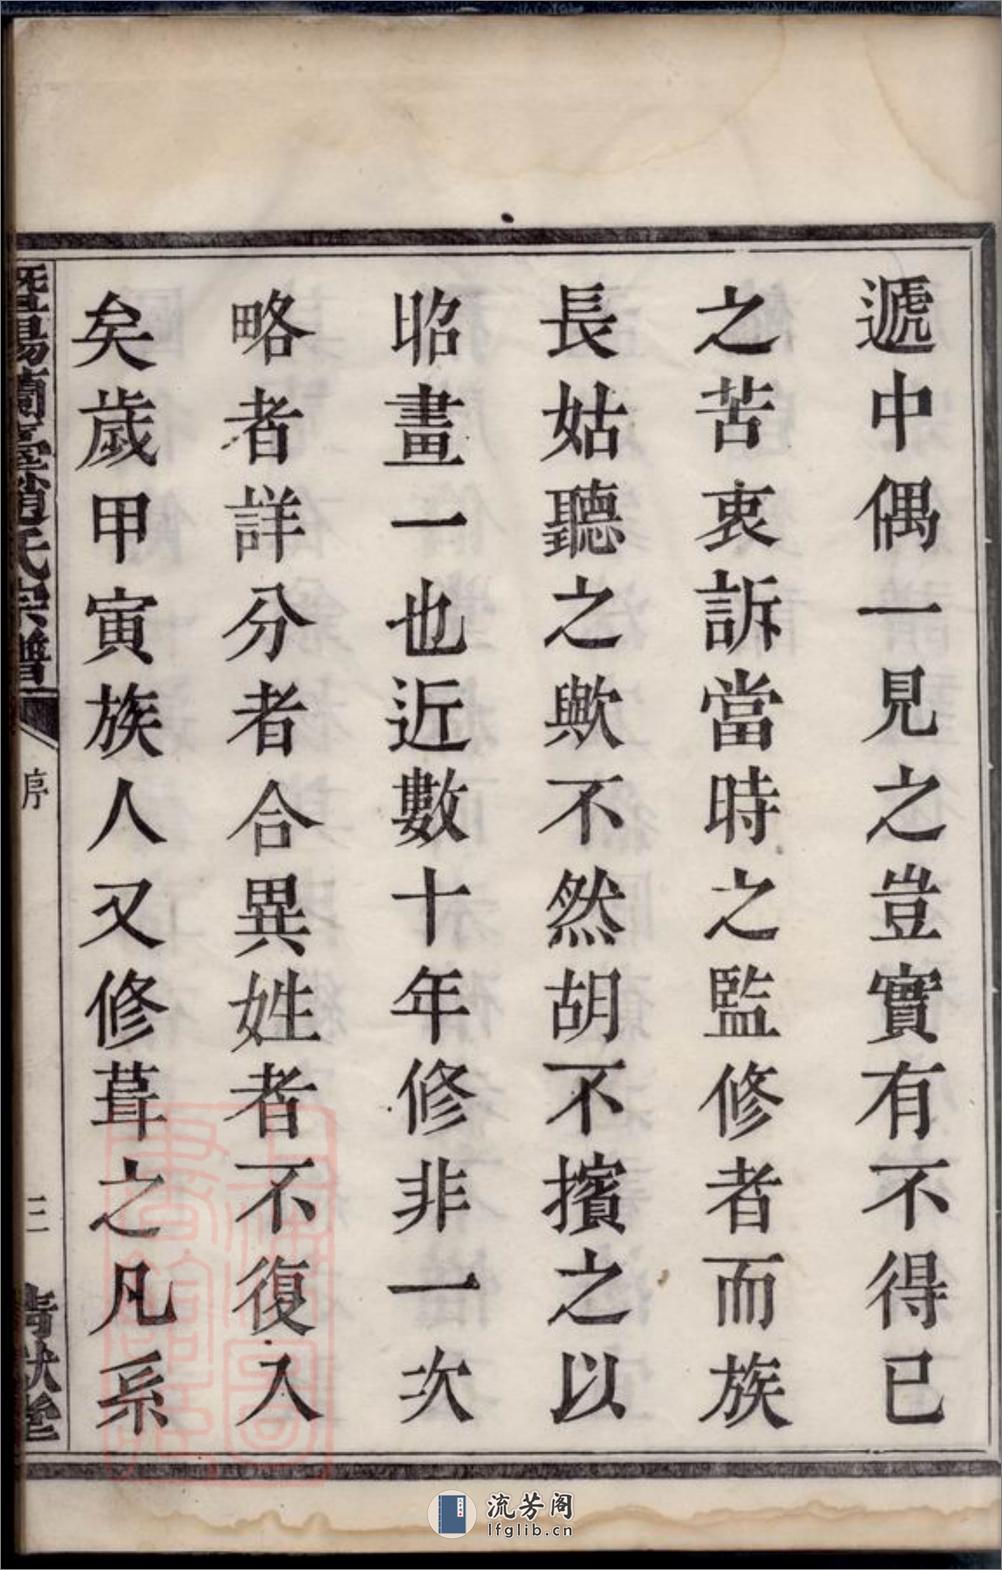 遞中偶一見之豈實有不得已
之苦衷訴當時之監修者而族
長姑聽之歟不然胡不擯之以
昭畫一也近數十年修非一次
略者詳分者合異姓者不復入
矣歲甲寅族人又修葺之凡系
暨陽蘭臺趙氏宗譜
序
三
清獻堂
流芳阁
lfglib.cn